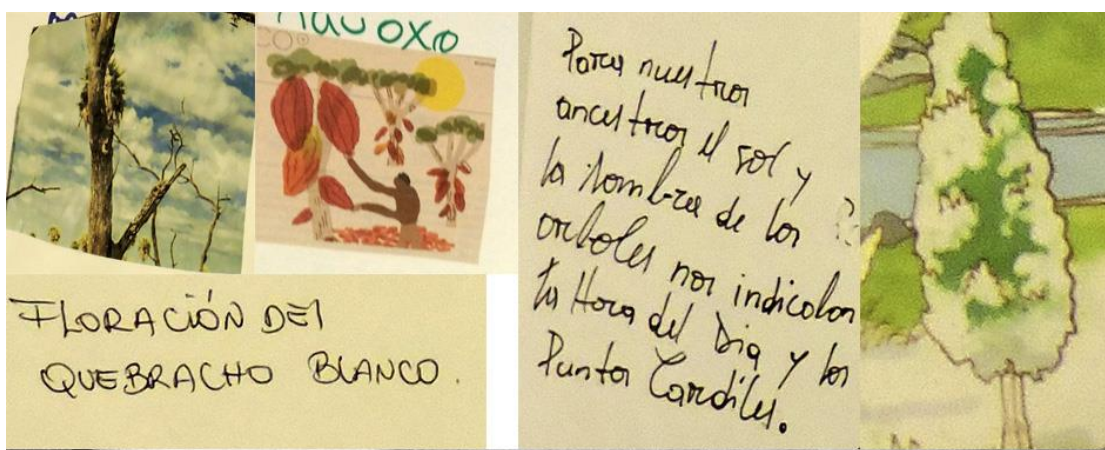 FLORACIÓN DEl
QUEBRACHO BLANCO.
Para nuestros
ancestros el sol y
la sombra de los
arboles nos indicaban
la Hora del Dia y los
Puntos Cardiles.